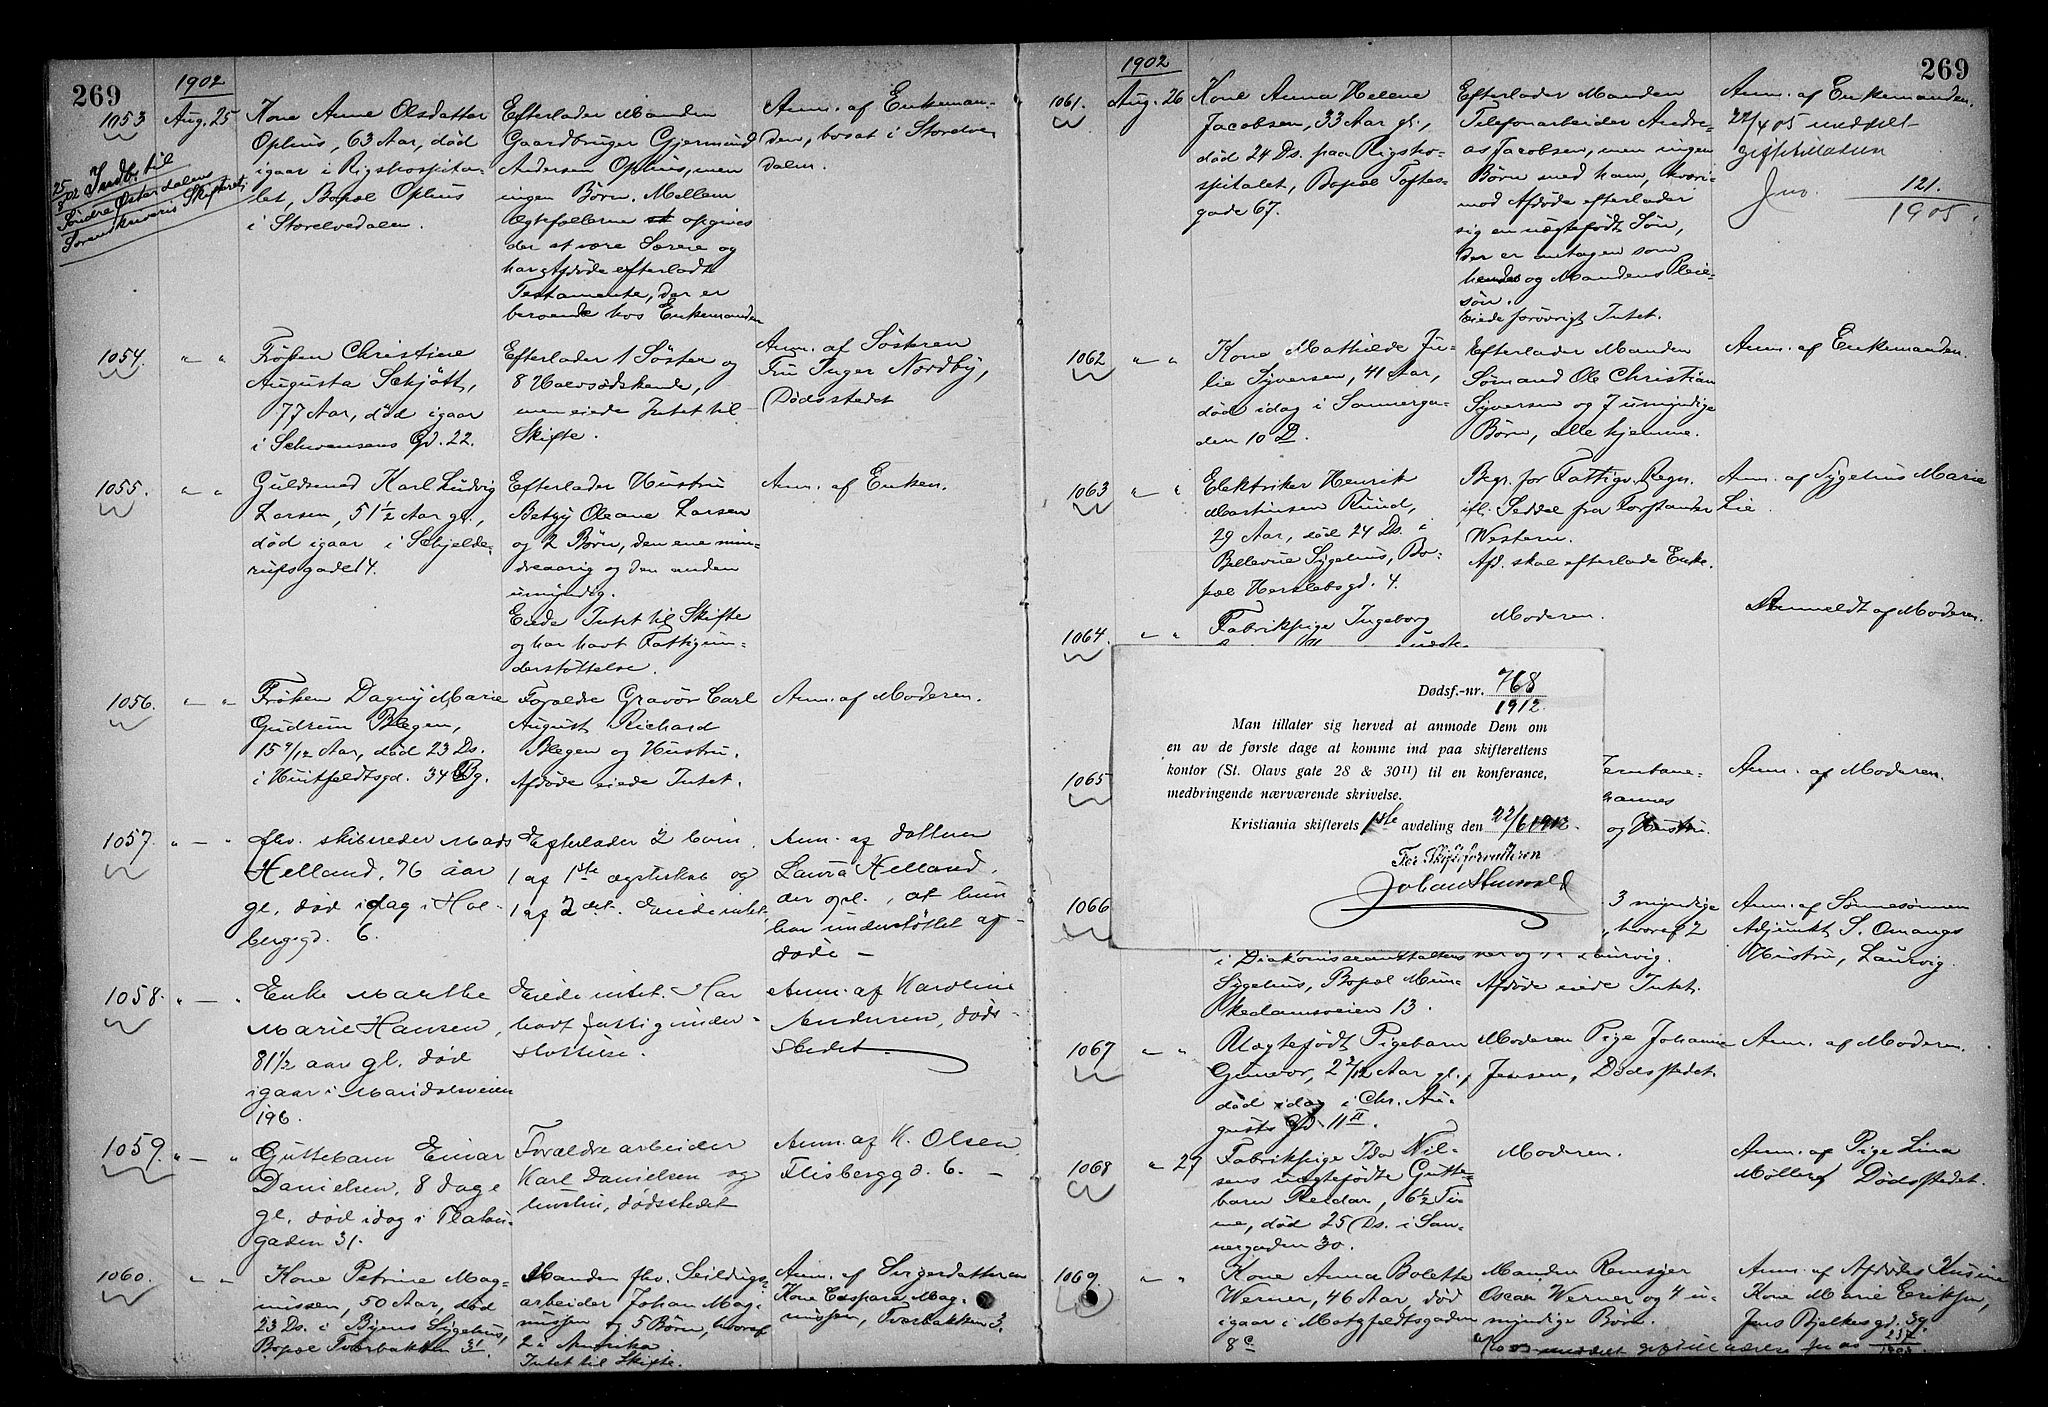 269
1902
1053
Aug. 25
Kone Anne Olsdatter
Ophus, 63 Aar, død
igaar i Rigshospita-
let, Bopæl Ophus
i Storelvedalen.
Efterlader Manden
Gaardbruger Gjermund
Andersen Ophus, men
ingen Børn. Mellem
Ægtefællerne opgives
der at være Særeie og
har Afdøde efterladt
Testamente, der er
beroende hos Enkemanden
Anm. af Enkeman-
den, bosat i Storelve-
dalen.
25/8 02 Indb. til
Søndre Østerdalens
Sorenskriveris Skifteret.
1054.
" "
Frøken Christine
Augusta Schjøtt,
77 Aar, død igaar
i Schwensens Gd. 22.
Efterlader 1 Søster og
8 Halvsødskende,
men eiede Intet til
Skifte.
Anm. af Søsteren
Fru Inger Nordby,
Dødsstedet
1055.
" "
Guldsmed Karl Ludvig
Larsen, 51 1/2 Aar gl.,
død igaar i Schjelde-
rupsgade 14.
Efterlader Hustru
Betzy Oleane Larsen
og 2 Børn, den ene min-
dreaarig og den anden
umyndig.
Eiede Intet til Skifte
og har havt Fattigun-
derstøttelse.
Anm. af Enken.
1056.
" "
Frøken Dagny Marie
Gudrun Blegen,
15 9/12 Aar, død 23 Ds.
i Huitfeldtsgd. 34 Bg.
Forældre Gravør Carl
August Richard
Blegen og Hustru.
Afdøde eiede Intet.
Anm. af Moderen.
1057.
" — "
fhv. skibsreder Mads
Helland, 76 aar
gl., død idag i Hol-
bergsgd. 6.
Efterlader 2 børn,
1 af 1ste ægteskab og
1 af 2det. Eiede intet,
Anm. af datteren
Laura Helland,
der opl., at hun
har understøttet af-
døde —
1058.
" — "
Enke Marthe
Marie Hansen,
81 1/2 aar gl. død
igaar i Maridalsveien
196.
Eiede intet. Har
havt fattigunder-
støttelse.
Anm. af Karoline
Andersen, døds-
stedet.
1059.
" — "
Guttebarn Einar
Danielsen, 8 dage
gl., død idag i Platou-
gaden 31.
Forældre arbeider
Karl Danielsen og
hustru, dødsstedet
Anm. af K. Olsen
Flisberggd. 6. —
1060.
" "
Kone Petrine Mag-
nussen, 50 Aar, død
23 Ds. i Byens Sygehus,
Bopæl Tverbakken 31.
Manden fhv. Seildugs-
arbeider Johan Mag-
nussen og 5 Børn, hvoraf
2 i Amerika.
Intet til Skifte.
Anm. af Svigerdatteren
Kone Caspara Mag-
nussen, Tverbakken 3.
269
1902
1061.
Aug. 26
Kone Anna Helene
Jacobsen, 33 Aar gl.,
død 24 Ds. paa Rigsho-
spitalet, Bopæl Toftes-
gade 67.
Efterlader Manden
Telefonarbeider Andre-
as Jacobsen, men ingen
Børn med ham, hvori-
mod Afdøde efterlader
sig en uægtefødt Søn,
der er antagen som
hendes og Mandens Pleie-
søn.
Eiede forøvrigt Intet.
Anm. af Enkemanden.
22/4 05 meddelt
giftetilladelse
Jno. 121.
1905.
1062
" "
Kone Mathilde Ju-
lie Syversen, 41 Aar,
død idag i Sannerga-
den 10 D.
Efterlader Manden
Sømand Ole Christian
Syversen og 7 umyndige
Børn, alle hjemme.
Anm. af Enkemanden.
1063
" "
Elektriker Henrik
Martinsen Ruud,
29 Aar, død 24 Ds. i
Bellevue Sygehus, Bo-
pæl Herslebsgd. 4.
Begr. for Fattigv. Regn.
ifl. Seddel fra Forstander
Western.
Afd. skal efterlade Enke.
Anm. af Sygehus Marie
Lie.
1064
" "
Fabrikpige Ingeborg
Moderen.
Anmeldt af Moderen.
Dødsf.-nr. 768
1912.
Man tillater sig herved at anmode Dem om
en av de første dage at komme ind paa skifterettens
kontor (St. Olavs gate 28 & 30 II) til en konferance,
medbringende nærværende skrivelse.
Kristiania skifterets 1ste avdeling den 22/6 1912.
For Skifteforvalteren
1065
Jernbane-
hannes
og Hustru.
Anm. af Moderen.
1066
i Diakonisseanstaltens
Sygehus, Bopæl Mun-
kedamsveien 13.
3 myndige
, hvoraf 2
Laurvig.
Afdøde eiede Intet.
Anm. af Sønnesønnen
Adjunkt S. Omangs
Hustru, Laurvig.
1067
" "
Uægtefødt Pigebarn
Gunvor, 2 2/12 Aar gl.,
død idag i Chr. Au-
gusts Gd. 11 II.
Moderen Pige Johanne
Jensen, Dødsstedet.
Anm. af Moderen.
1068
" 27
Fabrikpige Ida Nil-
sens uægtefødte Gutte-
barn Reidar, 6 1/2 Ti-
me, død 25 Ds. i San-
nergaden 30.
Moderen.
Anm. af Pige Lina
Møller, Dødsstedet.
1069.
" "
Kone Anna Bolette
Werner, 46 Aar, død
igaar i Motzfeldtsgaden
8 c
Manden Rensger
Oscar Werner og 4 u-
myndige Børn.
Anm. af Afdødes Kusine
Kone Marie Eriksen,
Jens Bjelkesgd. 39